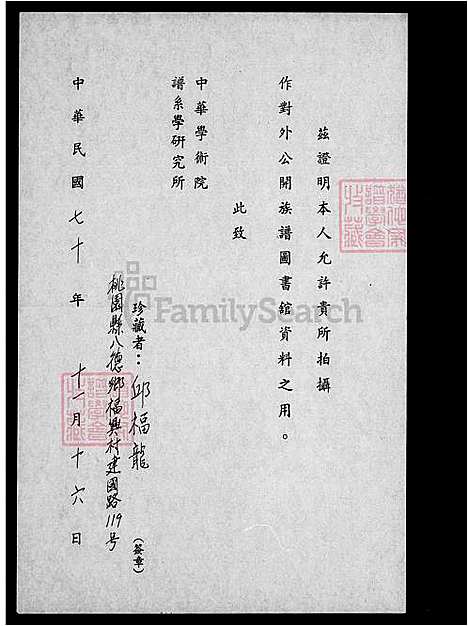 茲證明本人允許貴所拍攝
作對外公開族譜圖書館資料之用。
此致
中華學術院
譜系學研究所
珍藏者：邱福龍（簽章）
桃園縣八德鄉福興村建國路119号
中華民國七十年十一月十六日
FamilySearch